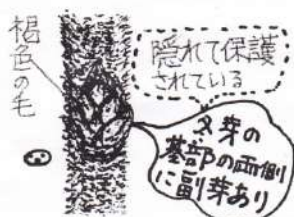 褐色の毛
隠れて保護
されている
冬芽の
基部の両側
に副芽あり